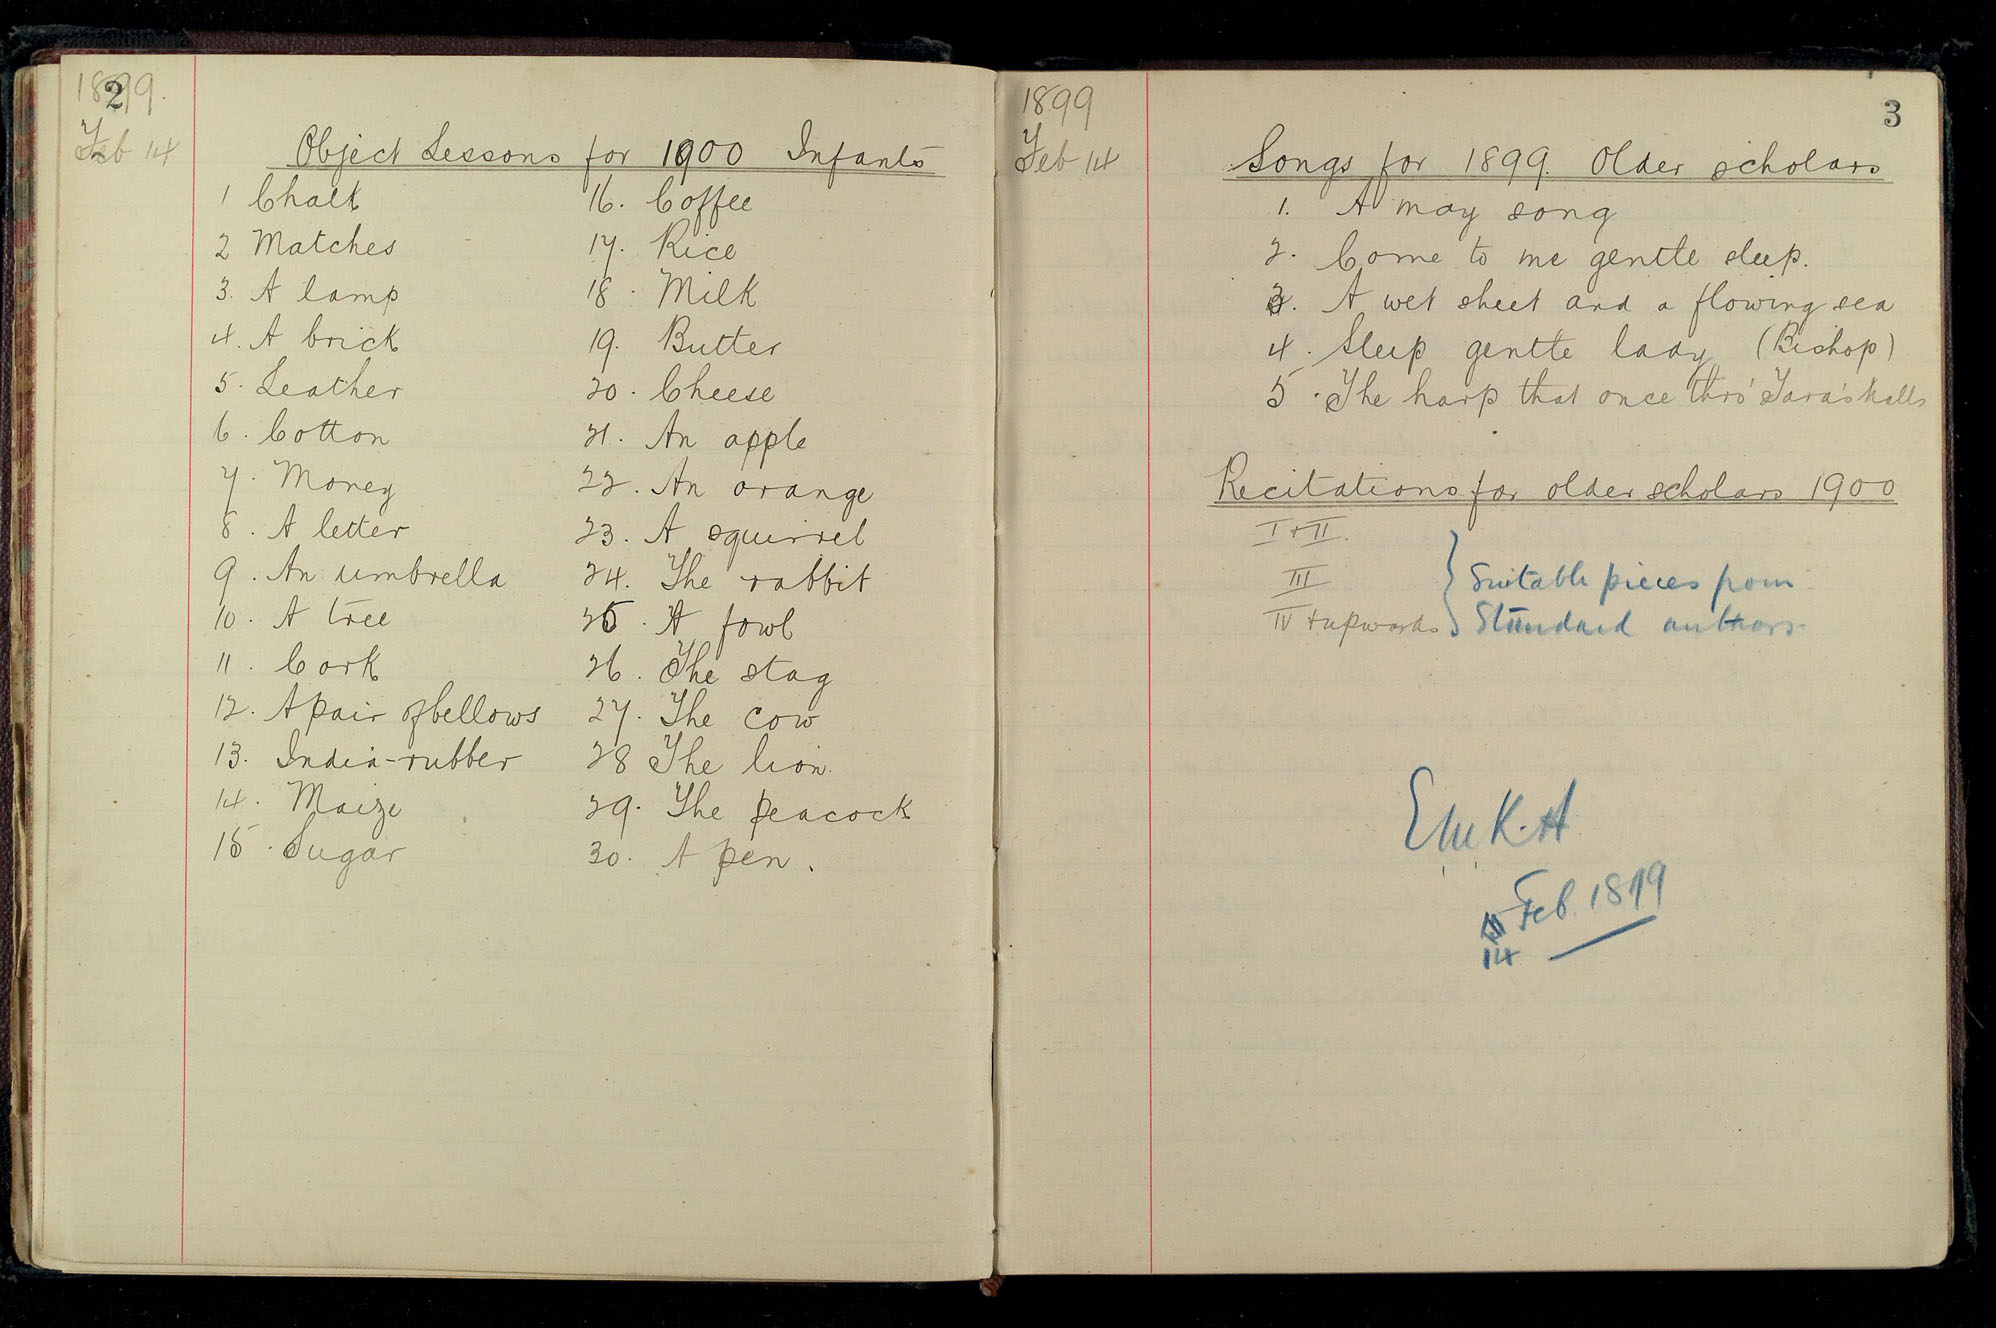 2
1899.
Feb 14
Object Lessons for 1900 Infants
1 Chalk
2 Matches
3. A lamp
4. A brick
5. Leather
6. Cotton
7. Money
8. A letter
9. An umbrella
10. A tree
11. Cork
12. A pair of bellows
13. India-rubber
14. Maize
15. Sugar
16. Coffee
17. Rice
18. Milk
19. Butter
20. Cheese
21. An apple
22. An orange
23. A squirrel
24. The rabbit
25. A fowl
26. The stag
27. The cow
28 The lion.
29. The peacock
30. A pen.
3
1899
Feb 14
Songs for 1899. Older scholars
1. A may song
2. Come to me gentle sleep.
3. A wet sheet and a flowing sea
4. Sleep gentle lady (Bishop)
5. The harp that once thro' Tara's halls
Recitations for older scholars 1900
I + II.
III
IV + upwards
} Suitable pieces from
Standard authors.
Feb. 1899
14